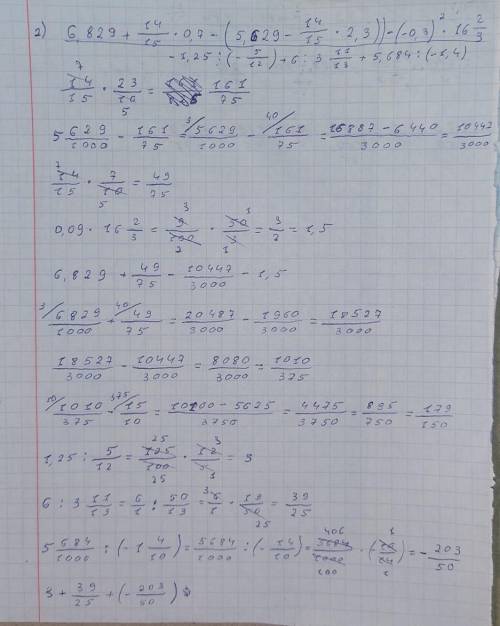 2) (6,829 + 14/15 · 0,7 - (5,629 - 14/15 · 2,3)) - (-0,3)² · 16 2/3
-1,25 : (-5/12) + 6 : 3 11/13 + 5,684 : (-1,4)
14/15 · 23/10 = 161/75
5 629/1000 - 161/75 = 5629/1000 - 161/75 = 16887-6440/3000 = 10447/3000
14/15 · 7/10 = 49/75
0,09 · 16 2/3 = 9/100 · 50/3 = 3/2 = 1,5
6,829 + 49/75 - 10447/3000 - 1,5
6829/1000 + 49/75 = 20487/3000 - 1960/3000 = 18527/3000
18527/3000 - 10447/3000 = 8080/3000 = 1010/375
1010/375 - 15/10 = 10100-5625/3750 = 4475/3750 = 895/750 = 179/150
1,25 : 5/12 = 125/100 · 12/5 = 3
6 : 3 11/13 = 6/1 : 50/13 = 6/1 · 13/50 = 39/25
5 684/1000 : (-1 4/10) = 5684/1000 : (-14/10) = 5684/1000 · (-10/14) = -203/50
3 + 39/25 + (-203/50)